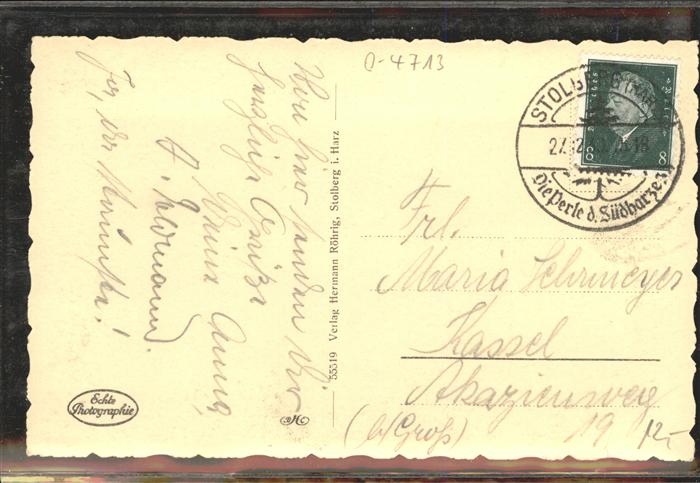 O-4713
Von hier senden Dir
herzliche Grüße
Deine Anna,
A. Feldmann.
Ja, der
55519 Verlag Hermann Röhrig, Stolberg i. Harz
Echte
Photographie
STOLBERG (HARZ)
Die Perle d. Südharzes
8 8
Frl.
Maria Schmeyer
Kassel
Akazienweg
(b/Groß) 19
12,-